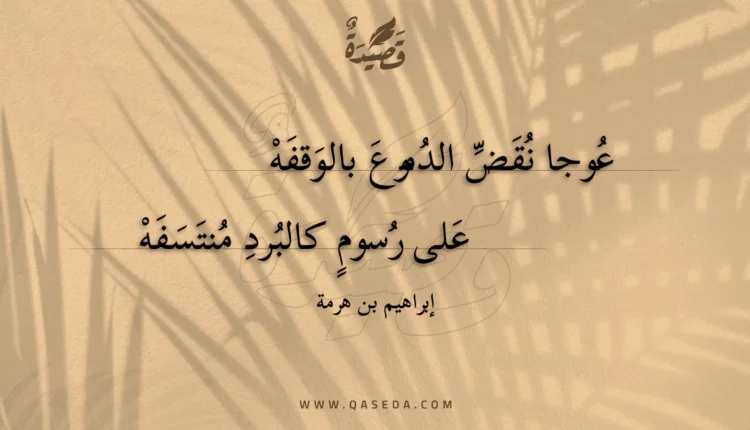 قَصِيْدَةٌ
عُوجا نُقَضِّ الدُموعَ بالوَقفَهْ
عَلى رُسومٍ كالبُردِ مُنتَسَفَهْ
إبراهيم بن هرمة
WWW.QASEDA.COM